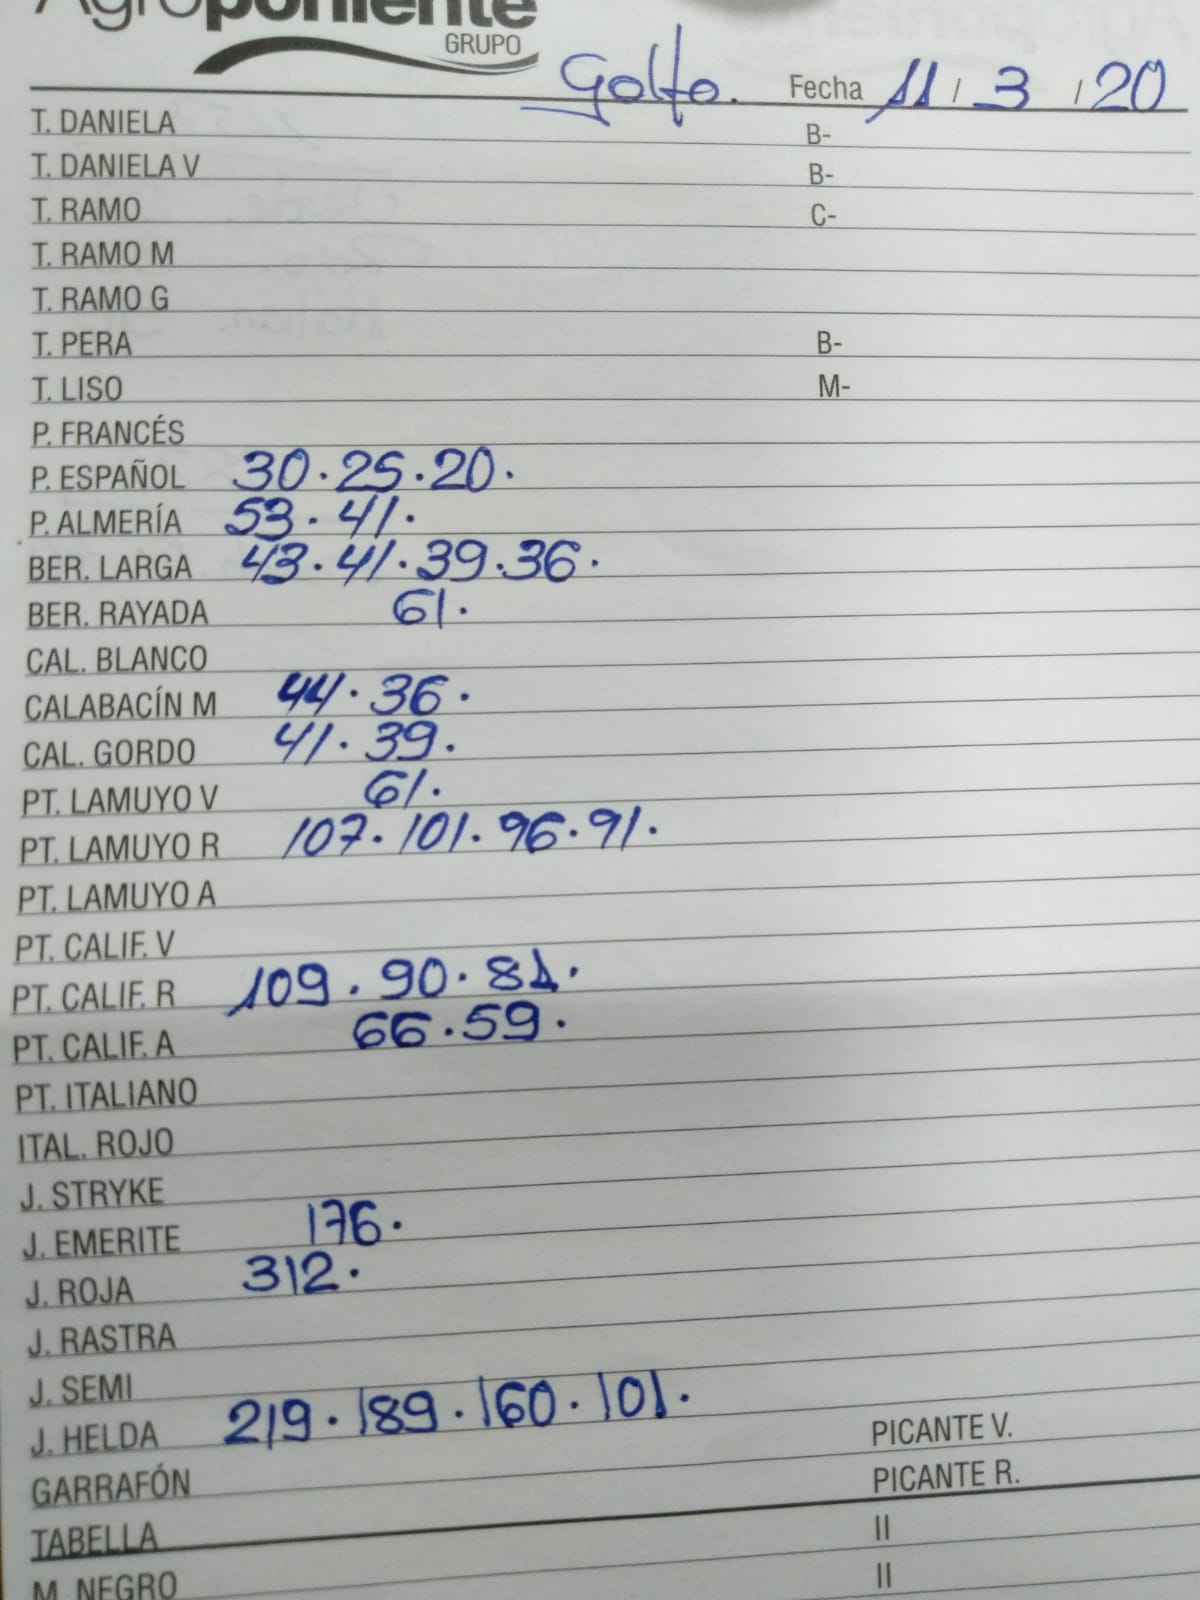 Agroponiente
GRUPO
Golfo. Fecha 11 / 3 / 20
T. DANIELA B-
T. DANIELA V B-
T. RAMO C-
T. RAMO M
T. RAMO G
T. PERA B-
T. LISO M-
P. FRANCÉS
P. ESPAÑOL 30.25.20.
P. ALMERÍA 53.41.
BER. LARGA 43.41.39.36.
BER. RAYADA 61.
CAL. BLANCO
CALABACÍN M 44.36.
CAL. GORDO 41.39.
PT. LAMUYO V 61.
PT. LAMUYO R 107.101.96.91.
PT. LAMUYO A
PT. CALIF. V
PT. CALIF. R 109.90.81.
PT. CALIF. A 66.59.
PT. ITALIANO
ITAL. ROJO
J. STRYKE
J. EMERITE 176.
J. ROJA 312.
J. RASTRA
J. SEMI
J. HELDA 219.189.160.101.
GARRAFÓN PICANTE V.
TABELLA PICANTE R.
M. NEGRO II
II